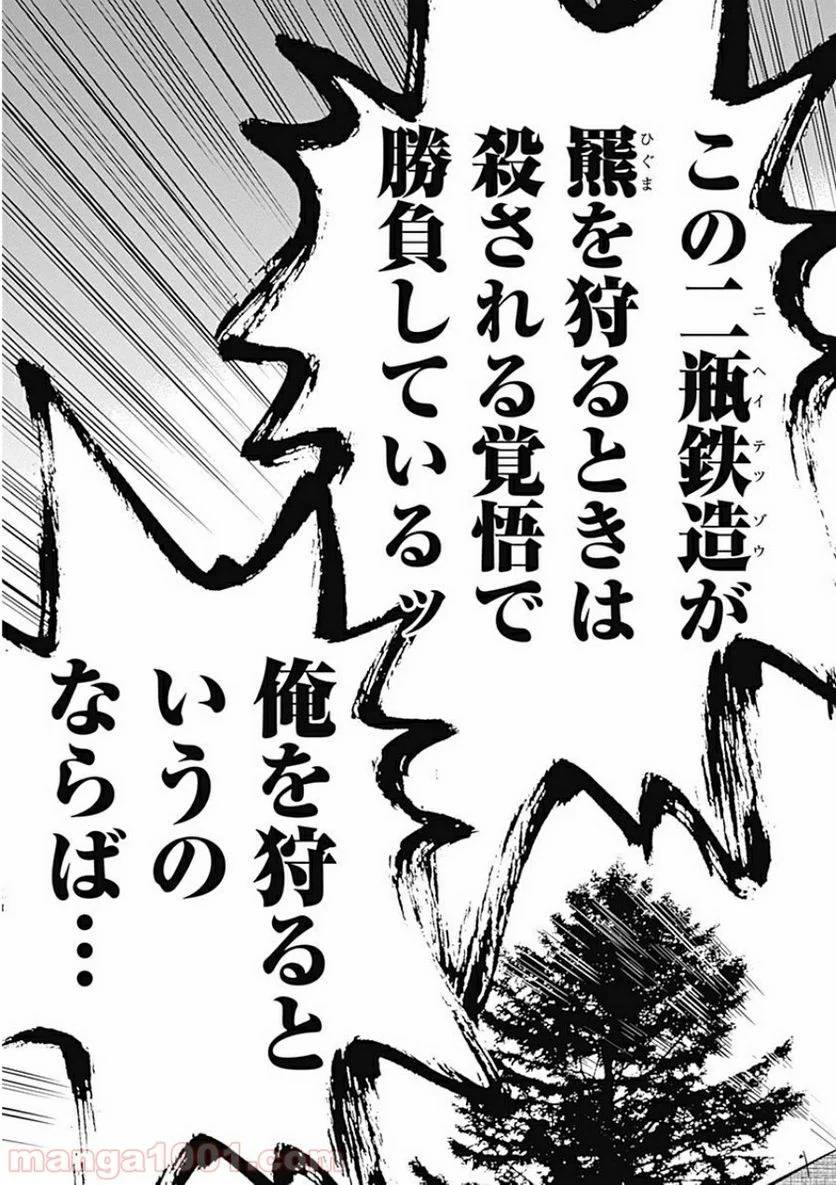 この二瓶鉄造が
羆を狩るときは
殺される覚悟で
勝負しているッ
俺を狩ると
いうの
ならば…
ニヘイテツゾウ
ひぐま
manga1001.com